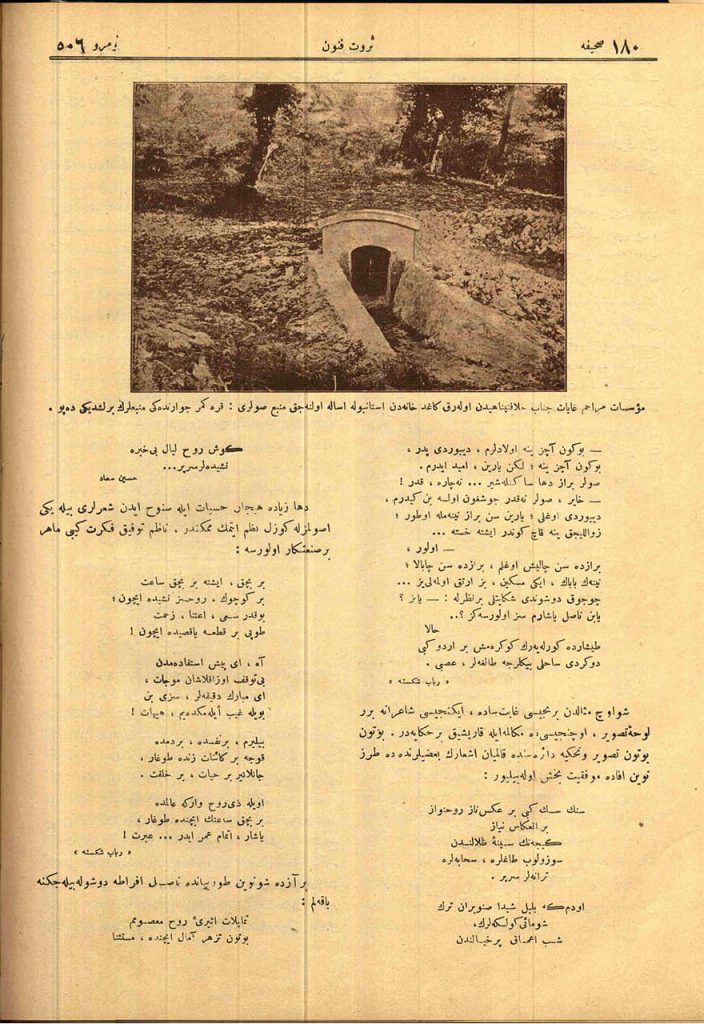 ١٨٠ صحيفه
ثروت فنون
نومرو ٥٠٦
مؤسسات مراحم غايات جناب خلافتپناهيدن اوله‌رق كاغد خانه‌دن استانبوله اساله اولنه‌جق منبع صولری : قره كمر جوارنده‌كی منبعلرك برلشديكی ده‌پو .
— بوكون آچز ينه اولادلرم ، ديیوردی پدر ،
بوكون آچز ينه ؛ لكن يارين ، اميد ايدرم .
صولر براز دها ساكنله‌شير ... نه‌چاره ، قدر !
— خاير ، صولر نه‌قدر جوشغون اولسه بن كيدرم ،
ديیوردی اوغلی ؛ يارين سن براز نينه‌مله اوطور ؛
زواللیجق ينه قاچ كوندر ايشته خسته ...
— اولور ،
برازده سن چاليش اوغلم ، برازده سن چابالا ؛
نينه‌ك باباك ، ايكی مسكين ، بز آرتق اولمه‌لی‌يز ...
چوجوق دوشوندی شكايتلی برنظرله : — يابز ؟
يابن ناصل ياشارم سز اولورسه‌كز ؟..
حالا
طيشارده كورله‌يه‌رك كوكره‌مش بر اردو كبی
دوكردی ساحلی بيكلرجه طالغه‌لر ، عصبی .
« رباب شكسته »
شو اوچ مثالدن برنجیسی غايت ساده ، ايكنجیسی شاعرانه برر
لوحهٔ تصوير ، اوچنجیسی‌ده مكالمه‌ايله قاريشيق برحكايه‌در . بوتون
بوتون تصوير وتحكيه دائره‌سنده قالميان اشعارك بعضيلرنده‌ده طرز
نوين افاده موفقيت بخش اوله‌بيليور :
سنك سسك كبی بر عكس ناز روحنواز
بر انعكاس نياز
كيجه‌نك سينهٔ ظلالندن
سوزولوب طاغلره ، سحابه‌لره
ترانه‌لر سرپر .
اودمكه بلبل شيدا صنوبران ترك
شومائی كولكه‌لرك،
شب اعماق پرخيالندن
كوش روح ليال بی خبره
نشيده‌لر سرپر...
حسين سعاد
دها زياده هيجان حسيات ايله سنوح ايدن شعرلری بيله يكی
اصولمزله كوزل نظم ايتمك ممكندر . ناظم توفيق فكرت كبی ماهر
برصنعتكار اولورسه :
بر بچق ، ايشته بر بچق ساعت
بر كوچوك ، روحسز نشيده ايچون ؛
بوقدر سعی ، اعتنا ، زحمت
طوپی بر قطعه ياقصيده ايچون !
آه ، ای پيش استفاده‌مدن
بی‌توقف اوزاقلاشان موجات ،
ای مبارك دقيقه‌لر ، سزی بن
بويله غيب ايله‌مكده‌يم ، هيهات !
بيليرم ، برنفسده ، بردمده
قوجه بر كائنات زنده طوغار ،
جانلانير بر حيات ، بر خلقت .
اويله ذی‌روح واركه عالمده
بر بچق ساعتك ايچنده طوغار ،
ياشار ، اتمام عمر ايدر ... عبرت !
« رباب شكسته »
برآزده شو نوين طور بيانده ناصل افراطه دوشوله‌بيله‌جكنه
باقه‌لم :
تمايلات اثيریٔ روح معصومم
بوتون تزهر آمال ايچنده ، مستثنا